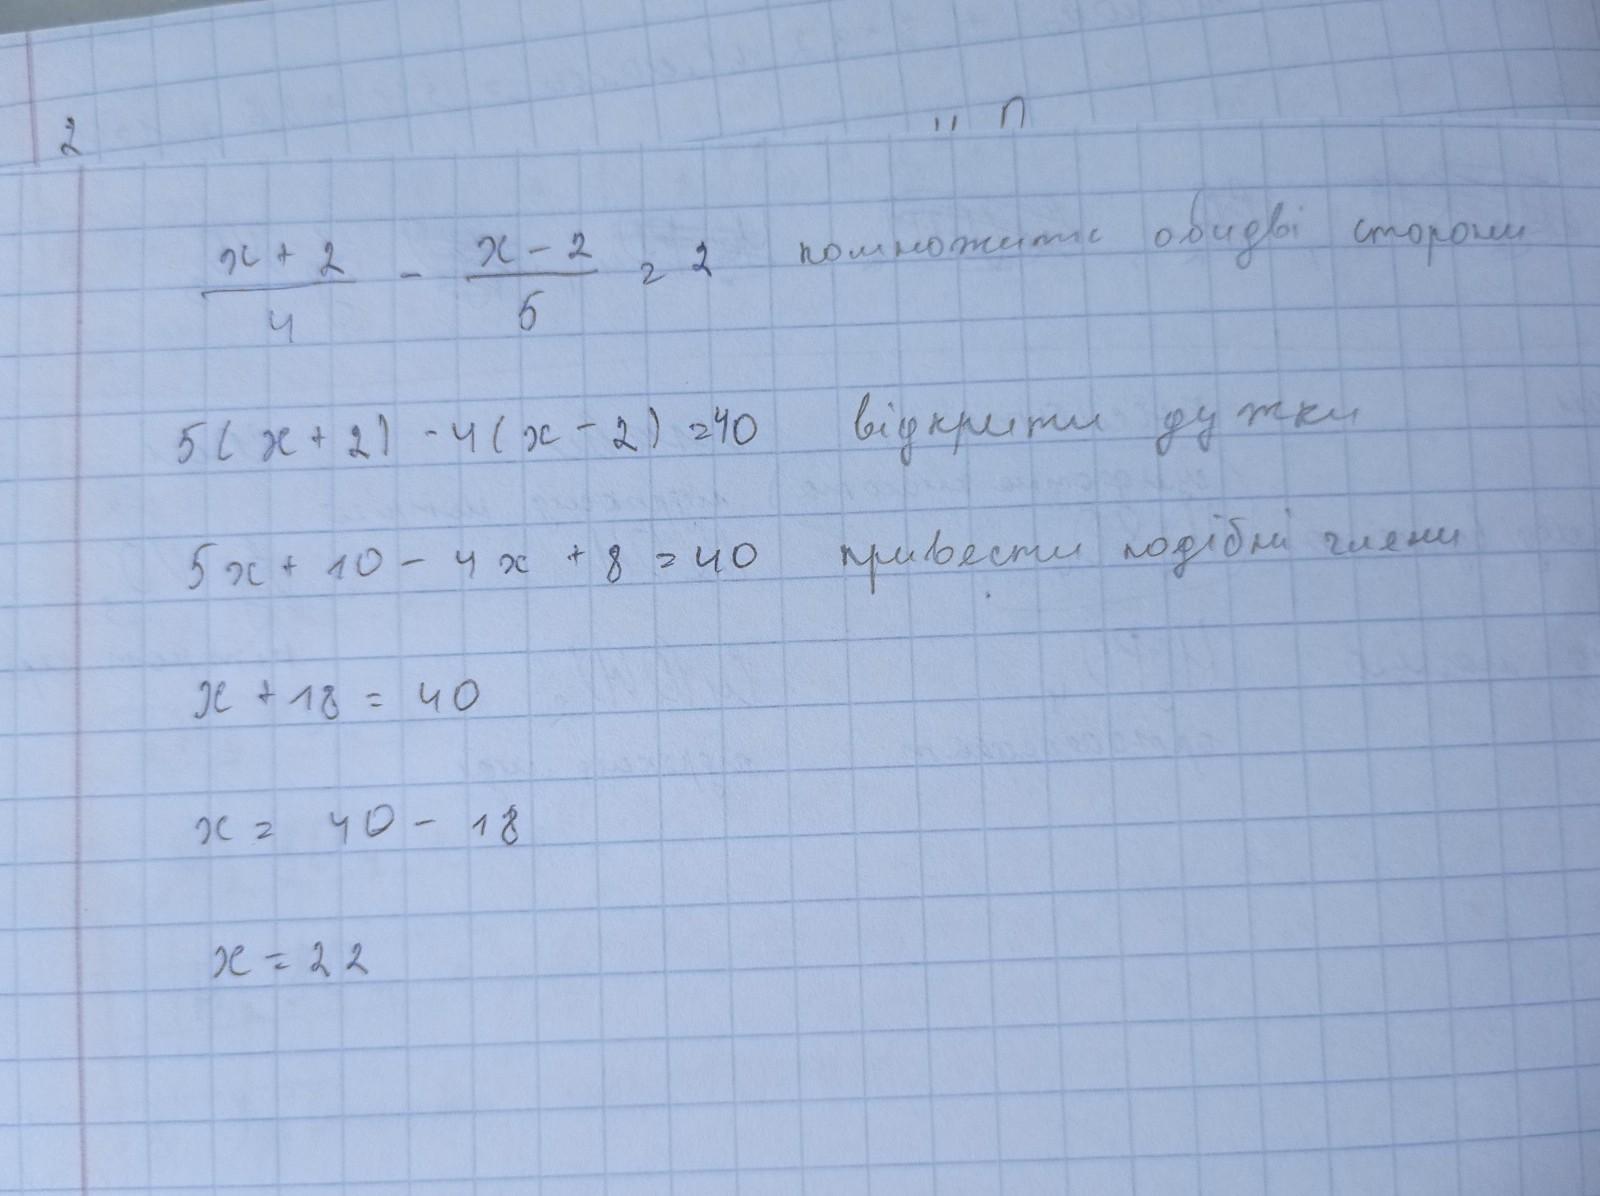 2 " п
x + 2 / 4 - x - 2 / 5 = 2 помножити обидві сторони
5(x + 2) - 4(x - 2) = 40 відкрити дужки
5x + 10 - 4x + 8 = 40 привести подібні члени
x + 18 = 40
x = 40 - 18
x = 22